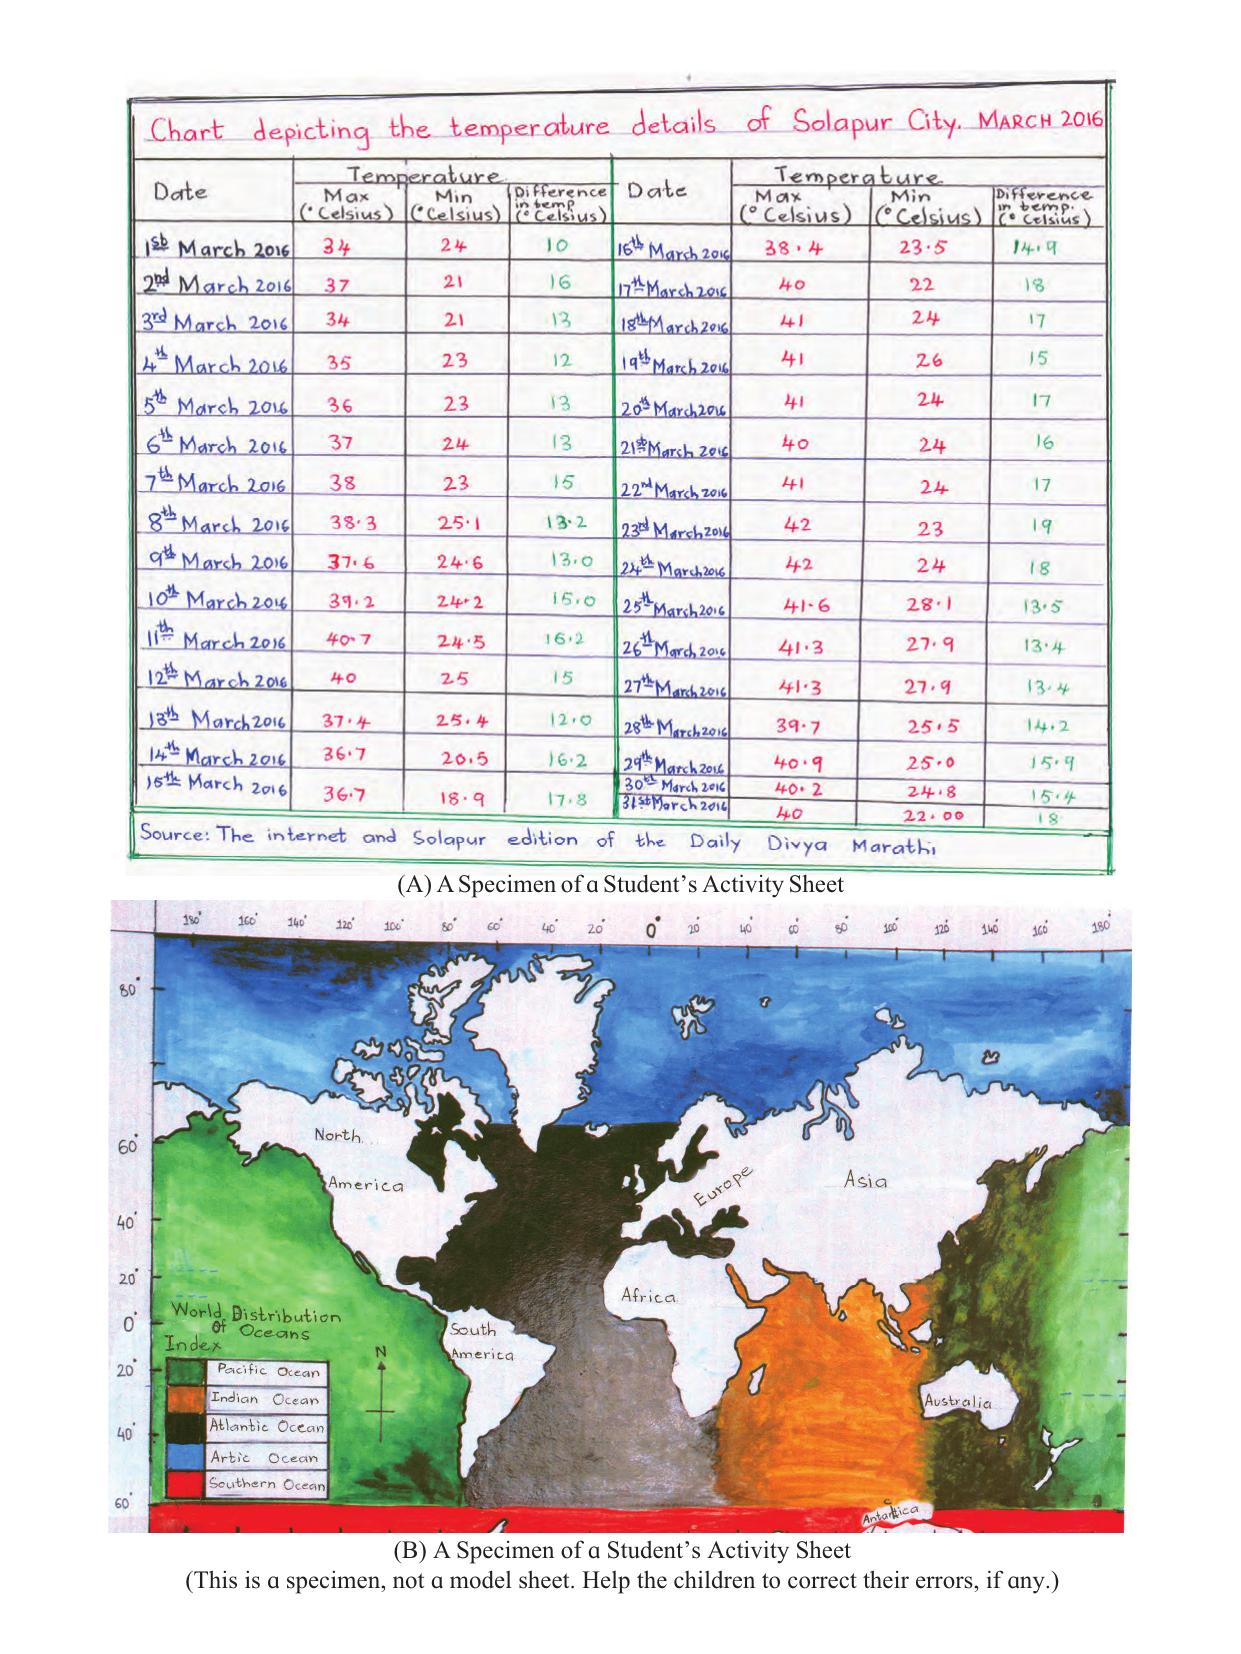 Chart depicting the temperature details of Solapur City. MARCH 2016
Date Temperature Date Temperature
Max (°Celsius) Min (°Celsius) Difference in temp (°Celsius) Max (°Celsius) Min (°Celsius) Difference in temp. (°Celsius)
1st March 2016 34 24 10 16th March 2016 38.4 23.5 14.9
2nd March 2016 37 21 16 17th March 2016 40 22 18
3rd March 2016 34 21 13 18th March 2016 41 24 17
4th March 2016 35 23 12 19th March 2016 41 26 15
5th March 2016 36 23 13 20th March 2016 41 24 17
6th March 2016 37 24 13 21st March 2016 40 24 16
7th March 2016 38 23 15 22nd March 2016 41 24 17
8th March 2016 38.3 25.1 13.2 23rd March 2016 42 23 19
9th March 2016 37.6 24.6 13.0 24th March 2016 42 24 18
10th March 2016 39.2 24.2 15.0 25th March 2016 41.6 28.1 13.5
11th March 2016 40.7 24.5 16.2 26th March 2016 41.3 27.9 13.4
12th March 2016 40 25 15 27th March 2016 41.3 27.9 13.4
13th March 2016 37.4 25.4 12.0 28th March 2016 39.7 25.5 14.2
14th March 2016 36.7 20.5 16.2 29th March 2016 40.9 25.0 15.9
15th March 2016 36.7 18.9 17.8 30th March 2016 40.2 24.8 15.4
31st March 2016 40 22.00 18
Source: The internet and Solapur edition of the Daily Divya Marathi
(A) A Specimen of a Student's Activity Sheet
180° 160° 140° 120° 100° 80° 60° 40° 20° 0° 20 40 60 80 100° 120 140° 160° 180°
80°
60°
40°
20°
0°
20°
40°
60°
North
America
Europe
Asia
Africa
South
America
Australia
Antarctica
World Distribution
Of Oceans
Index
N
Pacific Ocean
Indian Ocean
Atlantic Ocean
Artic Ocean
Southern Ocean
(B) A Specimen of a Student's Activity Sheet
(This is a specimen, not a model sheet. Help the children to correct their errors, if any.)